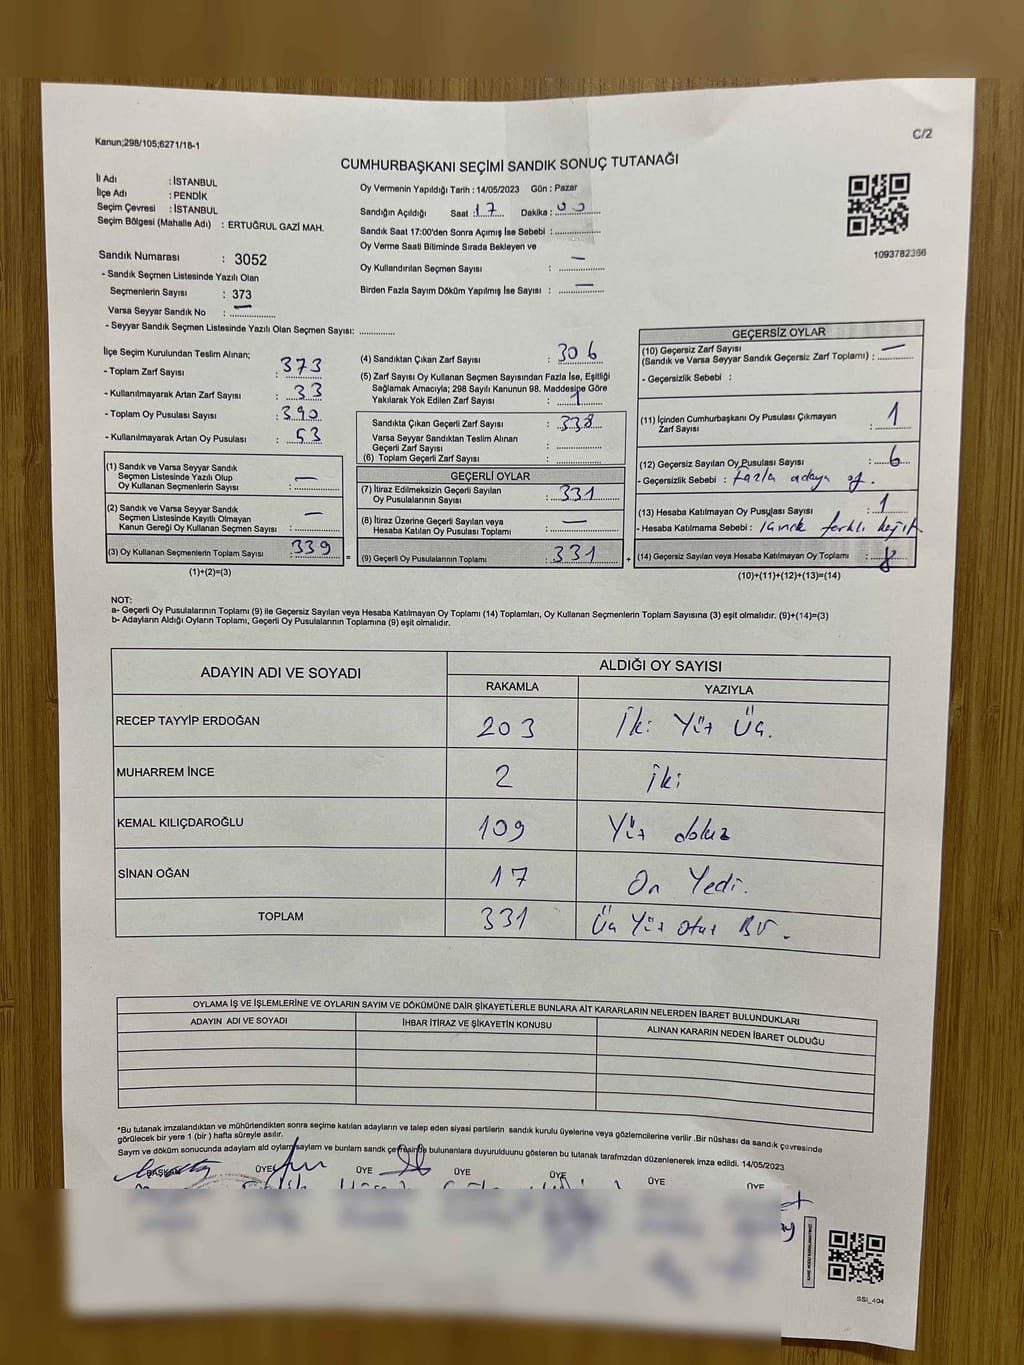 Kanun;298/105;6271/18-1
C/2
CUMHURBAŞKANI SEÇİMİ SANDIK SONUÇ TUTANAĞI
İl Adı : İSTANBUL
İlçe Adı : PENDİK
Seçim Çevresi : İSTANBUL
Seçim Bölgesi (Mahalle Adı) : ERTUĞRUL GAZİ MAH.
Sandık Numarası : 3052
- Sandık Seçmen Listesinde Yazılı Olan
Seçmenlerin Sayısı : 373
Varsa Seyyar Sandık No : —
- Seyyar Sandık Seçmen Listesinde Yazılı Olan Seçmen Sayısı: ............
Oy Vermenin Yapıldığı Tarih : 14/05/2023 Gün : Pazar
Sandığın Açıldığı Saat : 17 Dakika : 00
Sandık Saat 17:00'den Sonra Açımış İse Sebebi : ............
Oy Verme Saati Bitiminde Sırada Bekleyen ve
Oy Kullandırılan Seçmen Sayısı : —
Birden Fazla Sayım Döküm Yapılmış İse Sayısı : —
1093782366
İlçe Seçim Kurulundan Teslim Alınan;
- Toplam Zarf Sayısı : 373
- Kullanılmayarak Artan Zarf Sayısı : 33
- Toplam Oy Pusulası Sayısı : 390
- Kullanılmayarak Artan Oy Pusulası : 53
(1) Sandık ve Varsa Seyyar Sandık
Seçmen Listesinde Yazılı Olup
Oy Kullanan Seçmenlerin Sayısı : —
(2) Sandık ve Varsa Seyyar Sandık
Seçmen Listesinde Kayıtlı Olmayan
Kanun Gereği Oy Kullanan Seçmen Sayısı : —
(3) Oy Kullanan Seçmenlerin Toplam Sayısı : 339 =
(1)+(2)=(3)
(4) Sandıktan Çıkan Zarf Sayısı : 306
(5) Zarf Sayısı Oy Kullanan Seçmen Sayısından Fazla İse, Eşitliği
Sağlamak Amacıyla; 298 Sayılı Kanunun 98. Maddesine Göre
Yakılarak Yok Edilen Zarf Sayısı : 1
Sandıkta Çıkan Geçerli Zarf Sayısı : 338
Varsa Seyyar Sandıktan Teslim Alınan
Geçerli Zarf Sayısı : ............
(6) Toplam Geçerli Zarf Sayısı : ............
GEÇERLİ OYLAR
(7) İtiraz Edilmeksizin Geçerli Sayılan
Oy Pusulalarının Sayısı : 331
(8) İtiraz Üzerine Geçerli Sayılan veya
Hesaba Katılan Oy Pusulası Toplamı : —
(9) Geçerli Oy Pusulalarının Toplamı : 331 +
GEÇERSİZ OYLAR
(10) Geçersiz Zarf Sayısı
(Sandık ve Varsa Seyyar Sandık Geçersiz Zarf Toplamı) : —
- Geçersizlik Sebebi :
(11) İçinden Cumhurbaşkanı Oy Pusulası Çıkmayan
Zarf Sayısı : 1
(12) Geçersiz Sayılan Oy Pusulası Sayısı : 6
- Geçersizlik Sebebi : fazla adaya oy.
(13) Hesaba Katılmayan Oy Pusulası Sayısı : 1
- Hesaba Katılmama Sebebi : farklı
(14) Geçersiz Sayılan veya Hesaba Katılmayan Oy Toplamı : 8
(10)+(11)+(12)+(13)=(14)
NOT:
a- Geçerli Oy Pusulalarının Toplamı (9) ile Geçersiz Sayılan veya Hesaba Katılmayan Oy Toplamı (14) Toplamları, Oy Kullanan Seçmenlerin Toplam Sayısına (3) eşit olmalıdır. (9)+(14)=(3)
b- Adayların Aldığı Oyların Toplamı, Geçerli Oy Pusulalarının Toplamına (9) eşit olmalıdır.
ADAYIN ADI VE SOYADI ALDIĞI OY SAYISI
RAKAMLA YAZIYLA
RECEP TAYYİP ERDOĞAN 203 İki Yüz Üç.
MUHARREM İNCE 2 iki
KEMAL KILIÇDAROĞLU 109 Yüz dokuz
SİNAN OĞAN 17 On Yedi.
TOPLAM 331 Üç Yüz otuz Bir.
OYLAMA İŞ VE İŞLEMLERİNE VE OYLARIN SAYIM VE DÖKÜMÜNE DAİR ŞİKAYETLERLE BUNLARA AİT KARARLARIN NELERDEN İBARET BULUNDUKLARI
ADAYIN ADI VE SOYADI İHBAR İTİRAZ VE ŞİKAYETİN KONUSU ALINAN KARARIN NEDEN İBARET OLDUĞU
*Bu tutanak imzalandıktan ve mühürlendikten sonra seçime katılan adayların ve talep eden siyasi partilerin sandık kurulu üyelerine veya gözlemcilerine verilir .Bir nüshası da sandık çevresinde
görülecek bir yere 1 (bir ) hafta süreyle asılır.
Sayım ve döküm sonucunda adayların ald oyların sayıların ve bunların sandk çevresinde bulunanlara duyurulduunu gösteren bu tutanak tarafımzdan düzenlenerek imza edildi. 14/05/2023
BAŞKAN ÜYE ÜYE ÜYE ÜYE ÜYE ÜYE
SSI_404